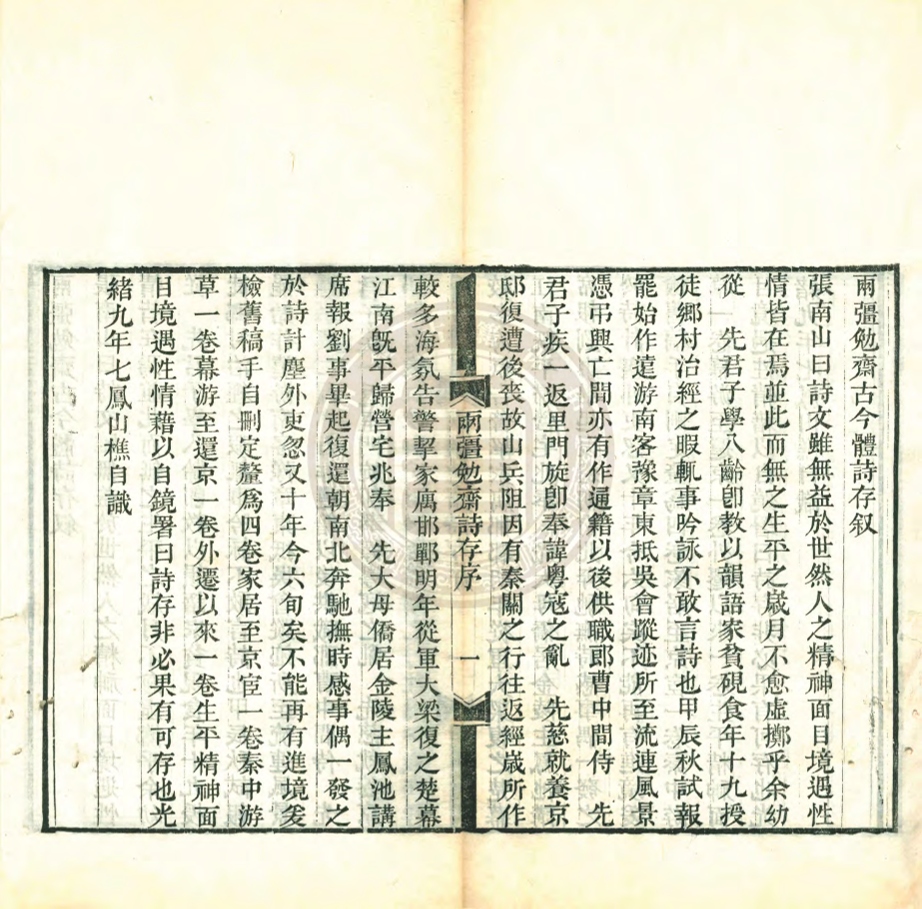 兩彊勉齋古今體詩存叙
張南山曰詩文雖無益於世然人之精神面目境遇性
情皆在焉並此而無之生平之歲月不愈虛擲乎余幼
從　先君子學八齡卽教以韻語家貧硯食年十九授
徒鄉村治經之暇輒事吟詠不敢言詩也甲辰秋試報
罷始作遠游南客豫章東抵吳會蹤迹所至流連風景
憑弔興亡間亦有作通籍以後供職郎曹中間侍　先
君子疾一返里門旋卽奉諱粵寇之亂　先慈就養京
邸復遭後喪故山兵阻因有秦關之行往返經歲所作
兩彊勉齋詩存序　一
較多海氛告警挈家寓邯鄲明年從軍大梁復之楚幕
江南旣平歸營宅兆奉　先大母僑居金陵主鳳池講
席報劉事畢起復還朝南北奔馳撫時感事偶一發之
於詩計塵外吏忽又十年今六旬矣不能再有進境爰
檢舊稿手自刪定釐爲四卷家居至京宦一卷秦中游
草一卷幕游至還京一卷外遷以來一卷生平精神面
目境遇性情藉以自鏡署曰詩存非必果有可存也光
緒九年七鳳山樵自識